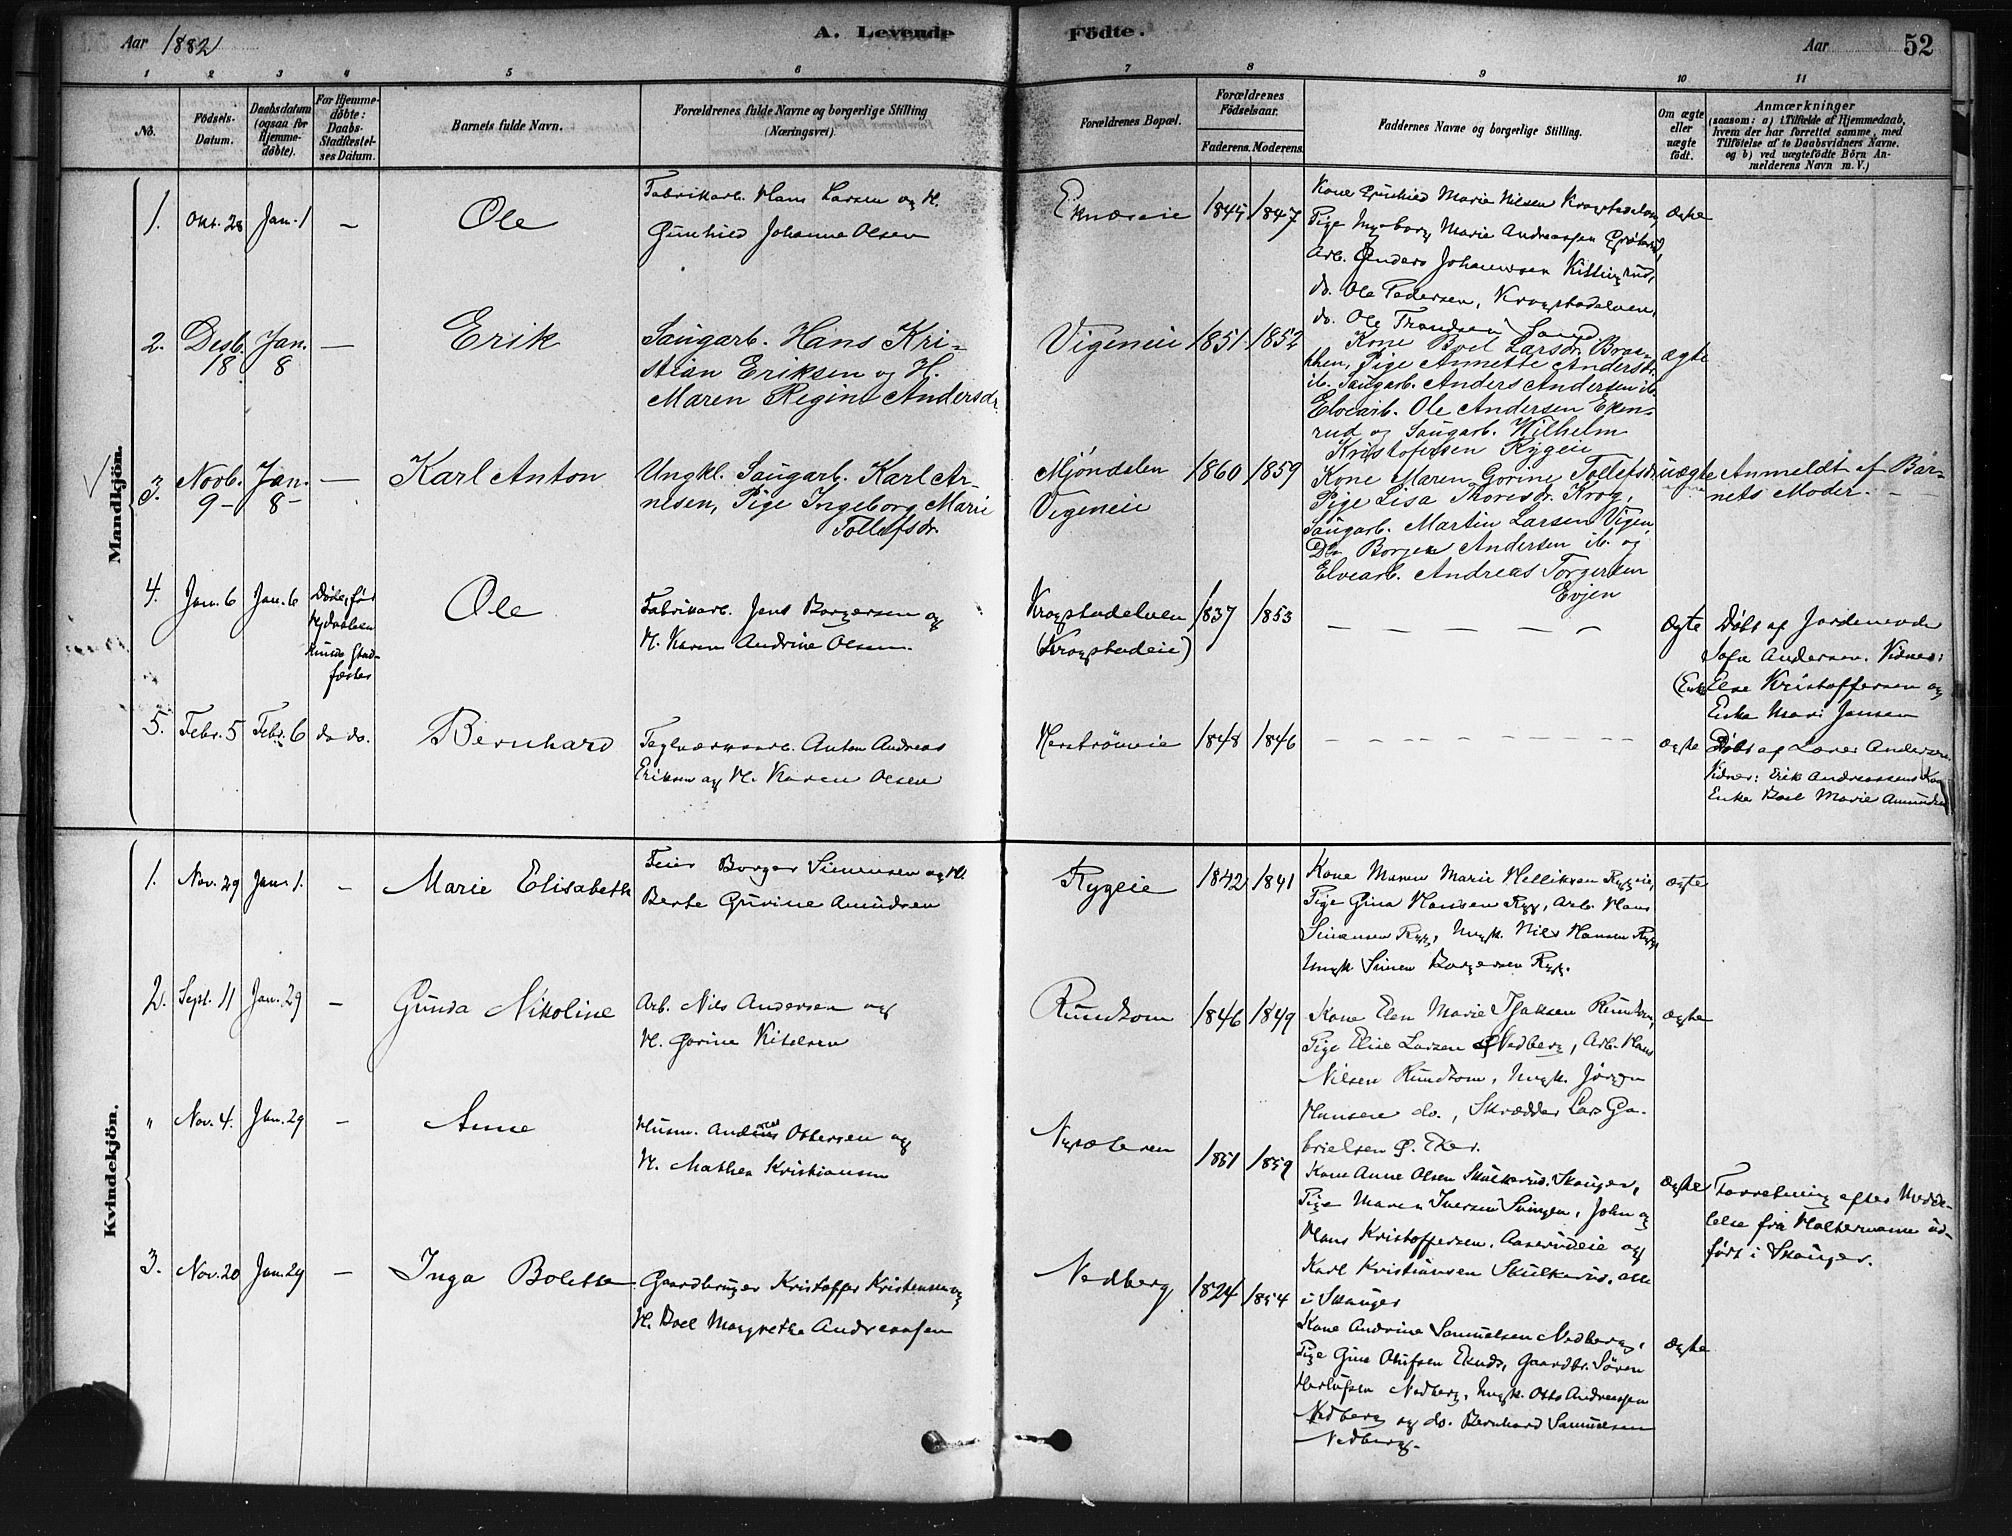 Aar 1882
A. Levende Födte.
Aar
52
1 2 3 4 5 6 7 8 9 10 11
No.
Födsels-
Datum.
Daabsdatum
(ogsaa for
Hjemme-
døbte).
For Hjemme-
døbte:
Daabs-
Stadfæstel-
ses Datum.
Barnets fulde Navn.
Forældrenes fulde Navne og borgerlige Stilling
(Næringsvei).
Forældrenes Bopæl.
Forældrenes
Födselsaar.
Faderens. Moderens.
Faddernes Navne og borgerlige Stilling.
Om ægte
eller
uægte
födt.
Anmærkninger
(saasom: a) i Tilfælde af Hjemmedaab,
hvem der har forrettet samme, med
Tilföielse af to Daabsvidners Navne.
og b) ved uægtefödte Börn An-
melderens Navn m. V.)
Mandkjön.
1. Okt. 28 Jan. 1 –
Ole
Fabrikarb. Hans Larsen og H.
Gunhild Johanne Olsen
1845 1847
Kone Gunhild Marie Nilsen Krogstadelven,
Pige Ingeborg Marie Andreassen
Arb. Anders Johannesen
do. Ole Pedersen, Krogstadelven,
do. Ole
ægte
2. Desb. 18 Jan. 8 –
Erik
Saugarb. Hans Kri-
stian Eriksen og H.
Maren Regine Andersdr.
Vigeneie
1851 1852
Kone Boel Larsdr. Bræk-
khen, Pige Annette Andersdr.
ib. Saugarb. Anders Andersen ib.
Elvearb. Ole Andersen Eken-
rud og Saugarb. Wilhelm
Kristofersen Rygeie
ægte
3. Novb. 9 – Jan. 8 – –
Karl Anton
Ungkl. Saugarb. Karl Ar-
nesen, Pige Ingeborg Marie
Tollefsdr.
Mjöndalen
Vigeneie
1860 1859
Kone Maren Gorine Tollefsdr.
Pige Lisa Thoresdr. Krog,
Saugarb. Martin Larsen Vigen,
Do. Borger Andersen ib. og
Elvearb. Andreas Torgersen
Evjen
uægte
Anmeldt af Bar-
nets Moder. –
4. Jan. 6 Jan. 6
Døde, før
Hjdaaben
kunde stad-
fæstes
Ole
Fabrikarb. Jens Borgersen og
H. Karen Andrine Olsen.
Krogstadelven
(Krogstadeie)
1837 1853
– – – – –
Ægte
Döbt af Jordemoder
Sofie Andersen. Vidner:
(Enke Else Kristoffersen og
Enke Mari Jansen
5. Febr. 5 Febr. 6 do do.
Bernhard
Teglværksarb. Anton Andreas
Eriksen og H. Karen Olsen
Herstrømeie
1848 1846
– – – – – – – –
ægte
Döbt af Lover Andersen
Vidner: Erik Andreassens Kone
Enke Boel Marie Amundsen
Kvindekjön.
1. Nov. 29 Jan. 1. –
Marie Elisabeth
Feier Borger Simensen og H.
Berte Gurine Amundsen
Rygeie
1842 1841
Kone Maren Marie Helliksen Rygeie,
Pige Gina Hansen Ryg, Arb. Hans
Simensen Ryg, Ungk. Nils Hansen Ryg,
Ungk. Simen Borgersen Ryg.
ægte
2. Sept. 11 Jan. 29 –
Gunda Nikoline
Arb. Nils Andersen og
H. Gorine Kitelsen
Rundtom
1846 1849
Kone Elen Marie Isaksen Rundtom,
Pige Elise Larsen Nedberg, Arb. Hans
Nilsen Rundtom, Ungk. Jørgen
Hansen do., Skrædder Lars Ga-
brielsen Ø. Eker.
ægte
" Nov. 4. Jan. 29 –
Anne
Husm. Ottersen og
H. Mathea Kristiansen
1851 1859
Kone Anne Olsen Skulkerud, Skauger,
Pige Maren Iversen Svingen, John og
Hans Kristoffersen, Aaserudeie og
Karl Kristiansen Skulkerud, alle
i Skauger
ægte
Forretning efter Medde-
lelse fra Holtermann ud-
ført i Skauger.
3. Nov. 20 Jan. 29 –
Inga Bolette
Gaardbruger Kristoffer Kristensen og
H. Boel Margrethe Andreassen
Nedberg
1824 1854
Kone Andrine Samuelsen Nedberg,
Pige Gina Olufsen Eknes, Gaardbr. Sören
Herlufsen Nedberg, Ungk. Otto Andreassen
Nedberg og do. Bernhard Samuelsen
Nedberg.
ægte